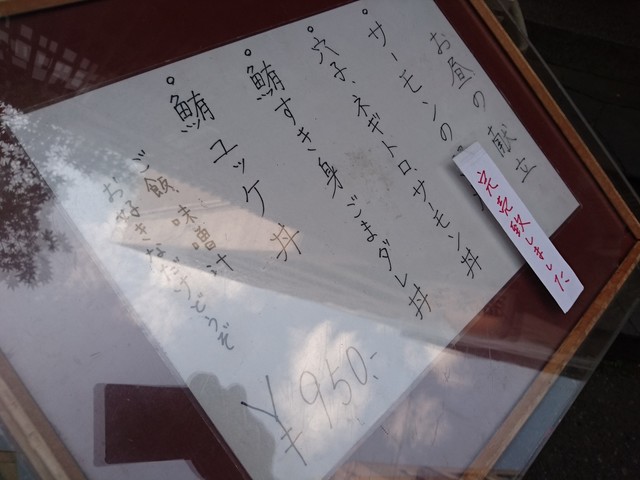 お昼の献立
・サーモンの
完売致しました
・穴子、ネギトロ、サーモン丼
・鮪すき身ごまダレ丼
・鮪ユッケ丼
ご飯、味噌汁
お好きなだけどうぞ
¥950.-